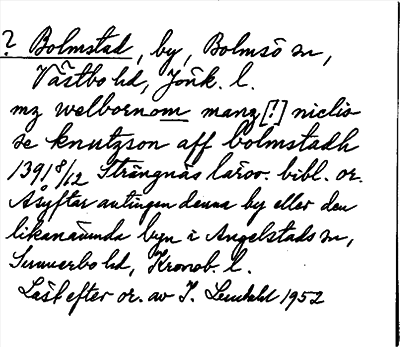 ? Bolmstad, by, Bolmsö sn,
Västbo hd, Jönk. l.
mz welbornom manz [!] niclis
se knutzson aff bolmstadh
1391 8/12 Strängnäs lärov. bibl. or.
Åsyftar antingen denna by eller den
likanämnda byn i Angelstads sn,
Sunnerbo hd, Kronob. l.
Läst efter or. av I. Lundahl 1952